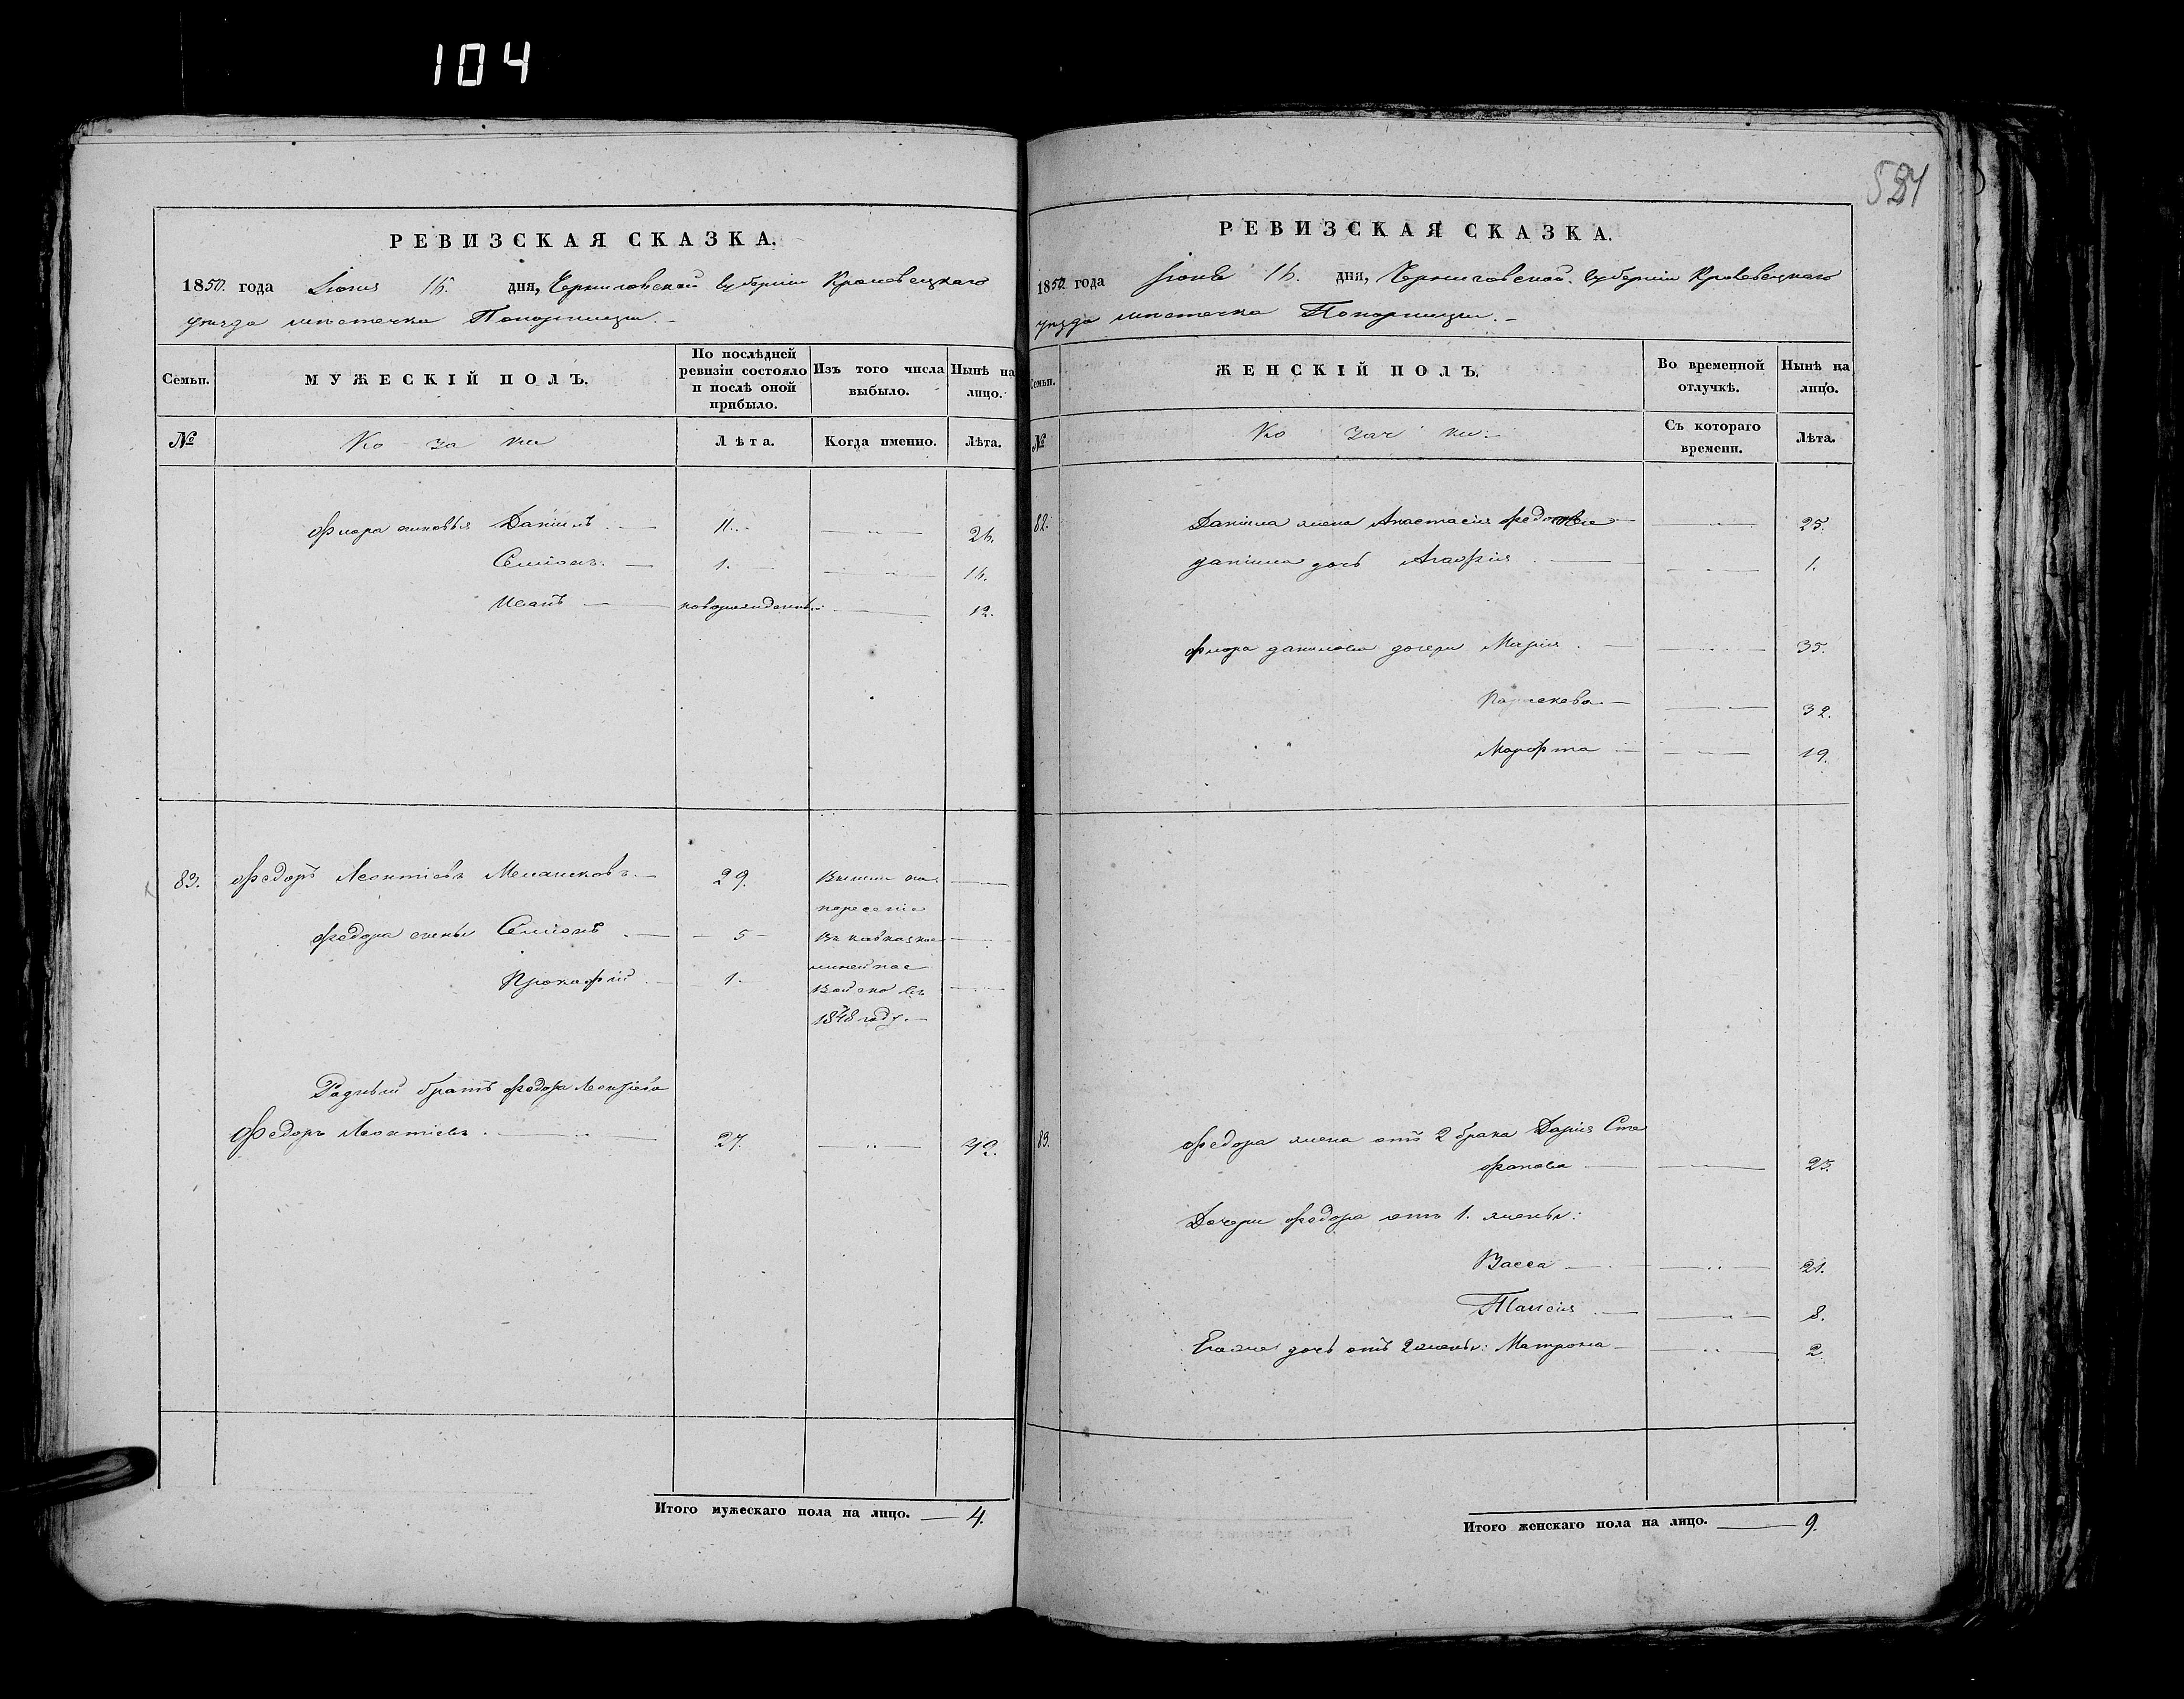 104
РЕВИЗСКАЯ СКАЗКА.
1850. года Іюня 16. дня, Черниговской губерніи Кролевецкаго
уѣзда мѣстечка Понорницы. –
Семьи.
МУЖЕСКІЙ ПОЛЪ.
По послѣдней ревизіи состояло и послѣ оной прибыло.
Изъ того числа выбыло.
Нынѣ на лицо.
№
Ко – за – ки
Лѣта.
Когда именно.
Лѣта.
Флора сыновья Даніилъ. — 11. — 26.
Семіонъ. — 1. — 16.
Иванъ — новорожденъ. — 12.
83. Федоръ Леонтіевъ — 29. Вышли на
переселеніе
Федора сыны Семіонъ — 5 — Въ кавказкое
линейное
Прокофій — 1. — Войско въ
1848 году. —
Родный братъ Федора Леонтіева
Федоръ Леонтіевъ. — 27. — 42.
Итого мужескаго пола на лицо. — 4.
531
РЕВИЗСКАЯ СКАЗКА.
1850 года Іюня 16. дня, Черниговской губерніи Кролевецкаго
уѣзда мѣстечка Понорницы. –
Семьи.
ЖЕНСКІЙ ПОЛЪ.
Во временной отлучкѣ.
Нынѣ на лицо.
№
Ко зач ки. –
Съ котораго времени.
Лѣта.
82. Даніила жена Анастасія Федотова — 25.
Даніила дочь Агафія — 1.
Флора Данилова дочери Марія — 35.
Параскева — 32.
Марфта — 19.
83. Федора жена отъ 2 брака Дарія Сте
фанова — 25.
Дочери Федора отъ 1. жены:
Васса — 21.
Таисія — 8.
Егоже дочь отъ 2 жены: Матрона — 2.
Итого женскаго пола на лицо. — 9.